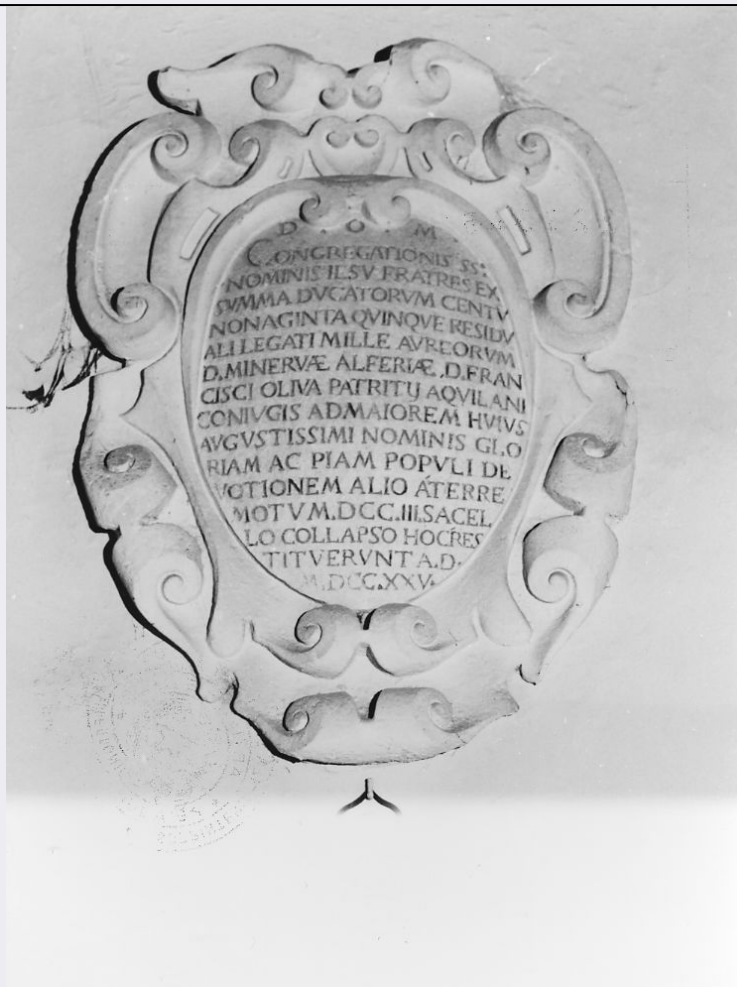 D . O . M
CONGREGATIONIS SS:
NOMINIS IESV FRATRES EX
SVMMA DVCATORVM CENTV
NONAGINTA QVINQVE RESIDV
ALI LEGATI MILLE AVREORVM
D. MINERVÆ ALFERIÆ . D. FRAN
CISCI OLIVA PATRITIJ AQVILANI
CONIVGIS AD MAIOREM HVIVS
AVGVSTISSIMI NOMINIS GLO
RIAM AC PIAM POPVLI DE
VOTIONEM ALIO ÁTERRE
MOTV M.DCC.III. SACEL
LO COLLAPSO HOC RES
TITVERVNT A.D.
M.DCC.XXV.